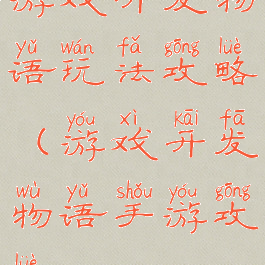 游戏开发物
yǔ wán fǎ gōng lüè
语玩法攻略
yóu xì kāi fā
（游戏开发
wù yǔ shǒu yóu gōng
物语手游攻
lüè